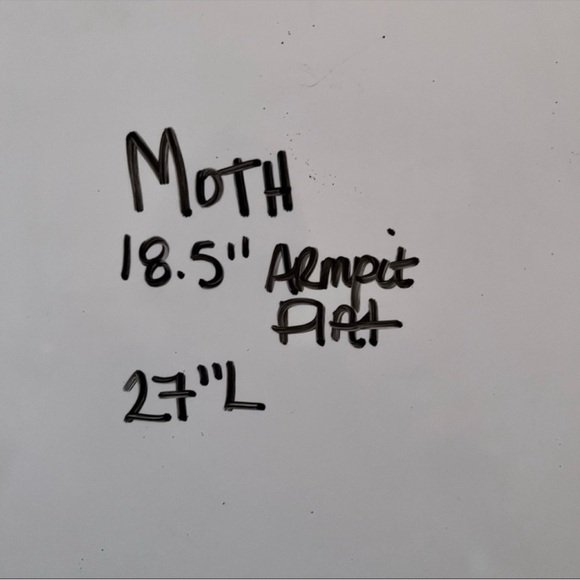 MOTH
18.5" ARmpit
FlAt
27"L